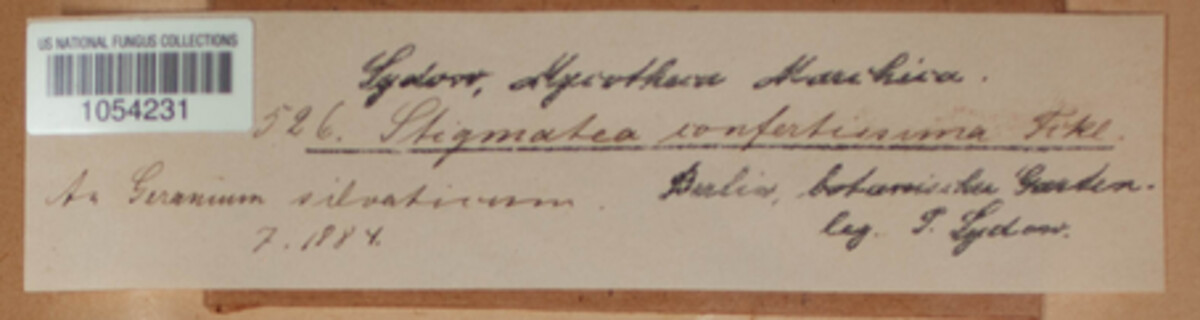 US NATIONAL FUNGUS COLLECTIONS
1054231
Sydow, Mycotheca Marchica.
526. Stigmatea confertissima Fckl.
An Geranium silvaticum.
7. 1884.
Berlin, botanischer Garten.
leg. P. Sydow.